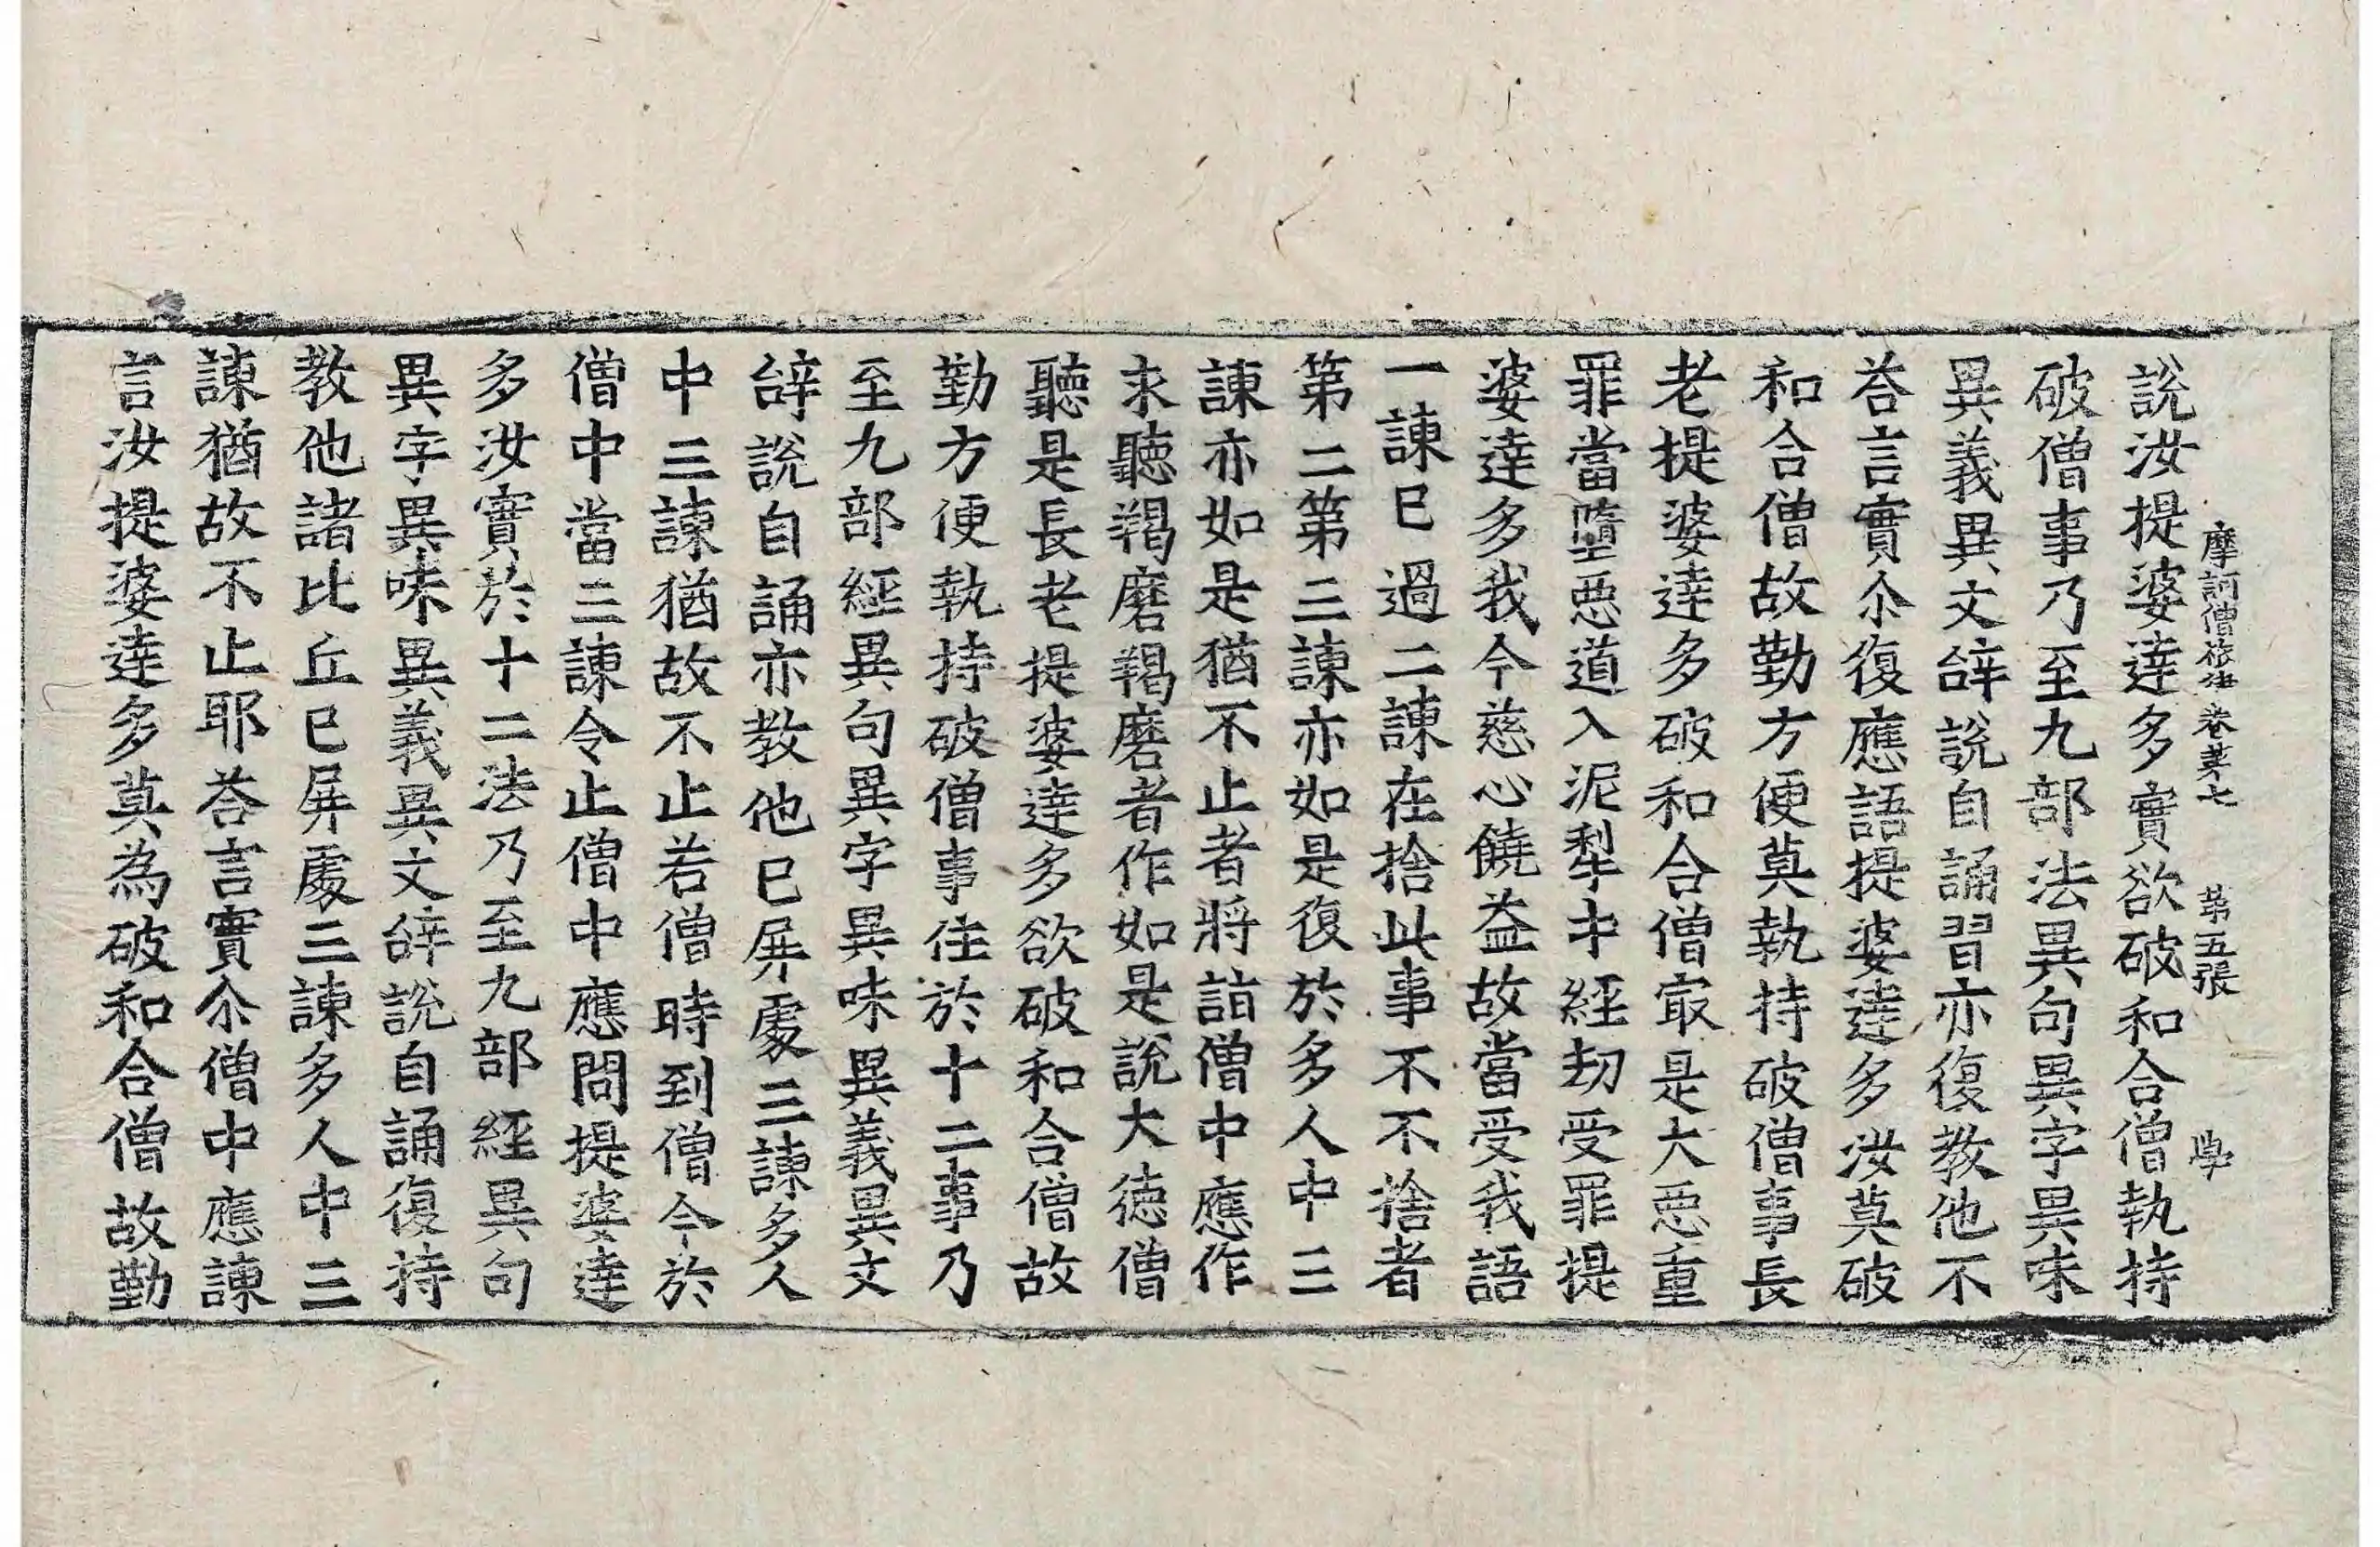 摩訶僧祇律卷第七　第五張　學
說汝提婆達多實欲破和合僧執持
破僧事乃至九部法異句異字異味
異義異文辝說自誦習亦復教他不
荅言實尒復應語提婆達多汝莫破
和合僧故勤方便莫執持破僧事長
老提婆達多破和合僧㝡是大惡重
罪當墮惡道入泥犁中經劫受罪提
婆達多我今慈心饒益故當受我語
一諫已過二諫在捨此事不不捨者
第二第三諫亦如是復於多人中三
諫亦如是猶不止者將詣僧中應作
求聽羯磨羯磨者作如是說大德僧
聽是長老提婆達多欲破和合僧故
勤方便執持破僧事住於十二事乃
至九部經異句異字異味異義異文
辝說自誦亦教他已屏處三諫多人
中三諫猶故不止若僧時到僧今於
僧中當三諫令止僧中應問提婆達
多汝實於十二法乃至九部經異句
異字異味異義異文辝說自誦復持
教他諸比丘已屏處三諫多人中三
諫猶故不止耶荅言實尒僧中應諫
言汝提婆達多莫為破和合僧故勤